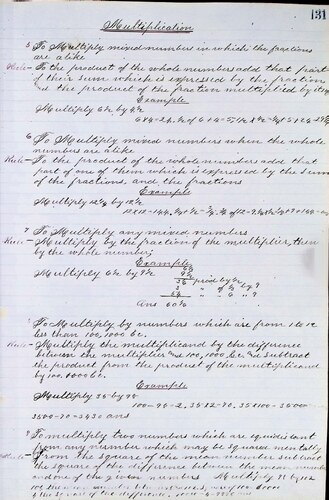 131
Multiplication
5 To Multiply mixed numbers in which the fractions
are alike
Rule - To the product of the whole numbers add that part
of their sum which is expressed by the fraction
and the product of the fraction multiplied by itself
Example
Multiply 6½ by 4½
6 To Multiply mixed numbers when the whole
numbers are alike
Rule - To the product of the whole numbers add that
part of one of them which is expressed by the sum
of the fractions, and the fractions
Example
Multiply by
7 To Multiply any mixed numbers
Rule - Multiply by the fraction of the multiplier, then
by the whole number;
Example
Multiply by
prod by
Ans
To Multiply by numbers which are from 1 to 12
less than 100, 1000 &c.
Rule - Multiply the multiplicand by the difference
between the multiplier and 100, 1000 &c. and subtract
the product from the product of the multiplicand
by 100, 1000 &c.
Example
Multiply 35 by 98
100-98=2. 35×2=70. 35×100=3500
3500-70=3430 ans
9 To multiply two numbers which are equidistant
from any number which may be squared mentally
Rule - From the square of the mean number subtract
the square of the difference between the mean number
and one of the given numbers Multiply by